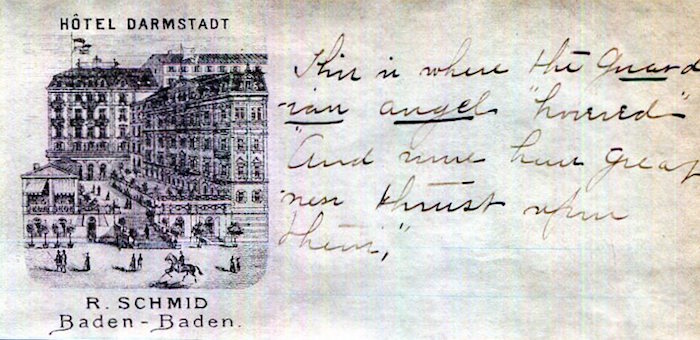 HÔTEL DARMSTADT
R. SCHMID
Baden-Baden.
This is where the Guard
-ian angel "hovered"
"And some have great
-ness thrust upon
them,"